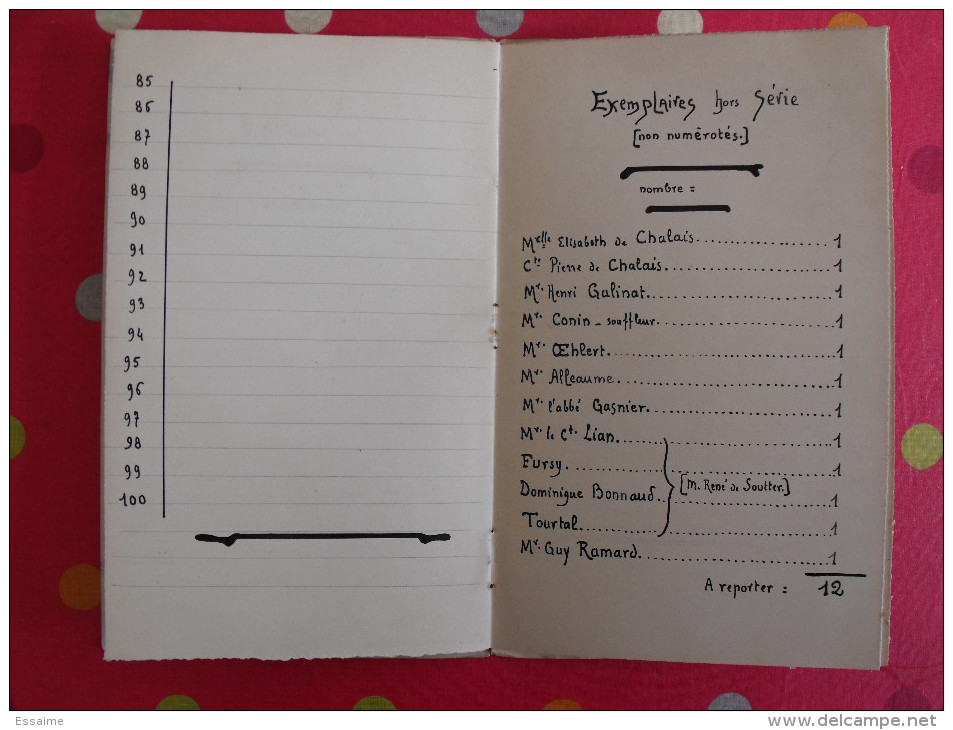 85
86
87
88
89
90
91
92
93
94
95
96
97
98
99
100
Exemplaires hors Série
[non numérotés.]
nombre =
Melle Elisabeth de Chalais........................1
Cte Pierre de Chalais........................1
Mr. Henri Galinat........................1
Mr. Conin - souffleur........................1
Mr. Œhlert........................1
Mr. Alleaume........................1
Mr. l'abbé Gasnier........................1
Mr. le Ct. Lian........................1
Fursy........................1
[M. René de Soutter.]
Dominique Bonnaud........................1
Tourtal........................1
Mr. Guy Ramard........................1
A reporter : 12
Essaime
www.delcampe.net